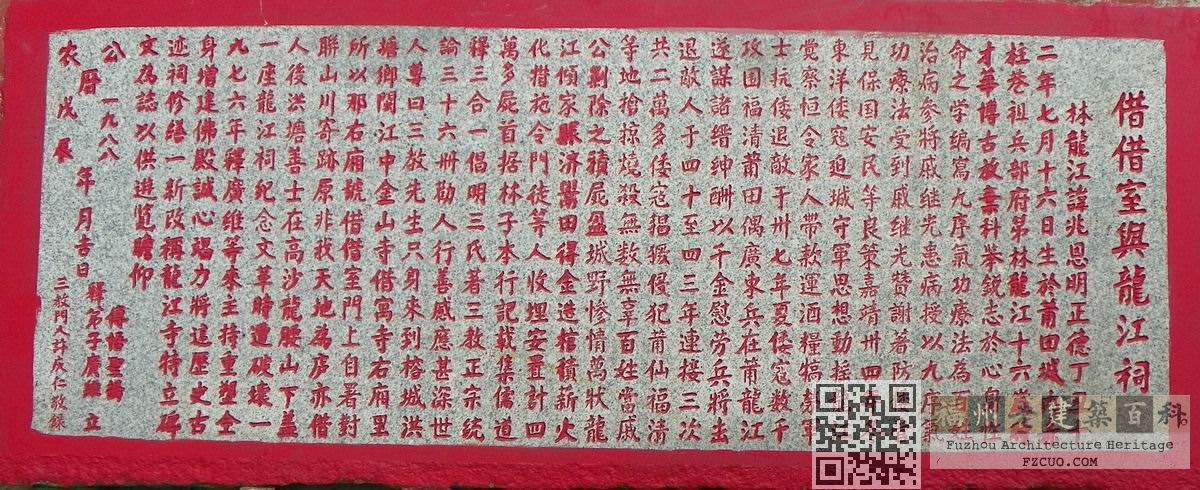 借借室與龍江祠
林龍江諱兆恩明正德丁丑十
二年七月十六日生於莆田城
柱巷祖兵部府第林龍江十六歲
才華博古放棄科举銳志於心身性
命之学編寫九序氣功療法為百姓
治病参將戚继光患病授以九序氣
功療法受到戚继光赞謝著防
見保国安民等良策嘉靖卅四
東洋倭寇迫城守軍思想動摇
觉察恒令家人带欵運酒糧犒禁軍
士抗倭退敵于卅七年夏倭寇数千
攻围福清莆田偶廣東兵在莆龍江
遂謀諸缙绅酬以千金慰劳兵將出
退敵人于四十至四三年連接三次
共二萬多倭寇猖獗侵犯莆仙福清
等地搶掠燒殺無数無辜百姓當戚
公剿除之積屍盈城野惨情萬狀龍
江傾家賑济鬻田得金造棺積薪火
化措施令門徒等人收埋安置計四
萬多屍首据林子本行記載集儒道
釋三合一倡明三氏著三教正宗統
論三十六册勸人行善感應甚深世
人尊曰三教先生只身來到榕城洪
塘鄉閩江中金山寺借寓寺右厢里
所以那右廂號借借室門上自署對
聯山川寄跡原非我天地為庐亦借
人後洪塘善士在高沙龍腰山下盖
一座龍江祠纪念文革時遭破壞一
九七六年釋廣维等來主持重塑全
身增建佛殿誠心竭力將這歷史古
迹祠修缮一新改稱龍江寺特立碑
文為誌以供遊览瞻仰
公曆一九八八
农戊辰年月吉日
傳悟聖籌
釋弟子廣維立
三教門人許成仁敬錄
福州老建築百科
Fuzhou Architecture Heritage
FZCUO.COM